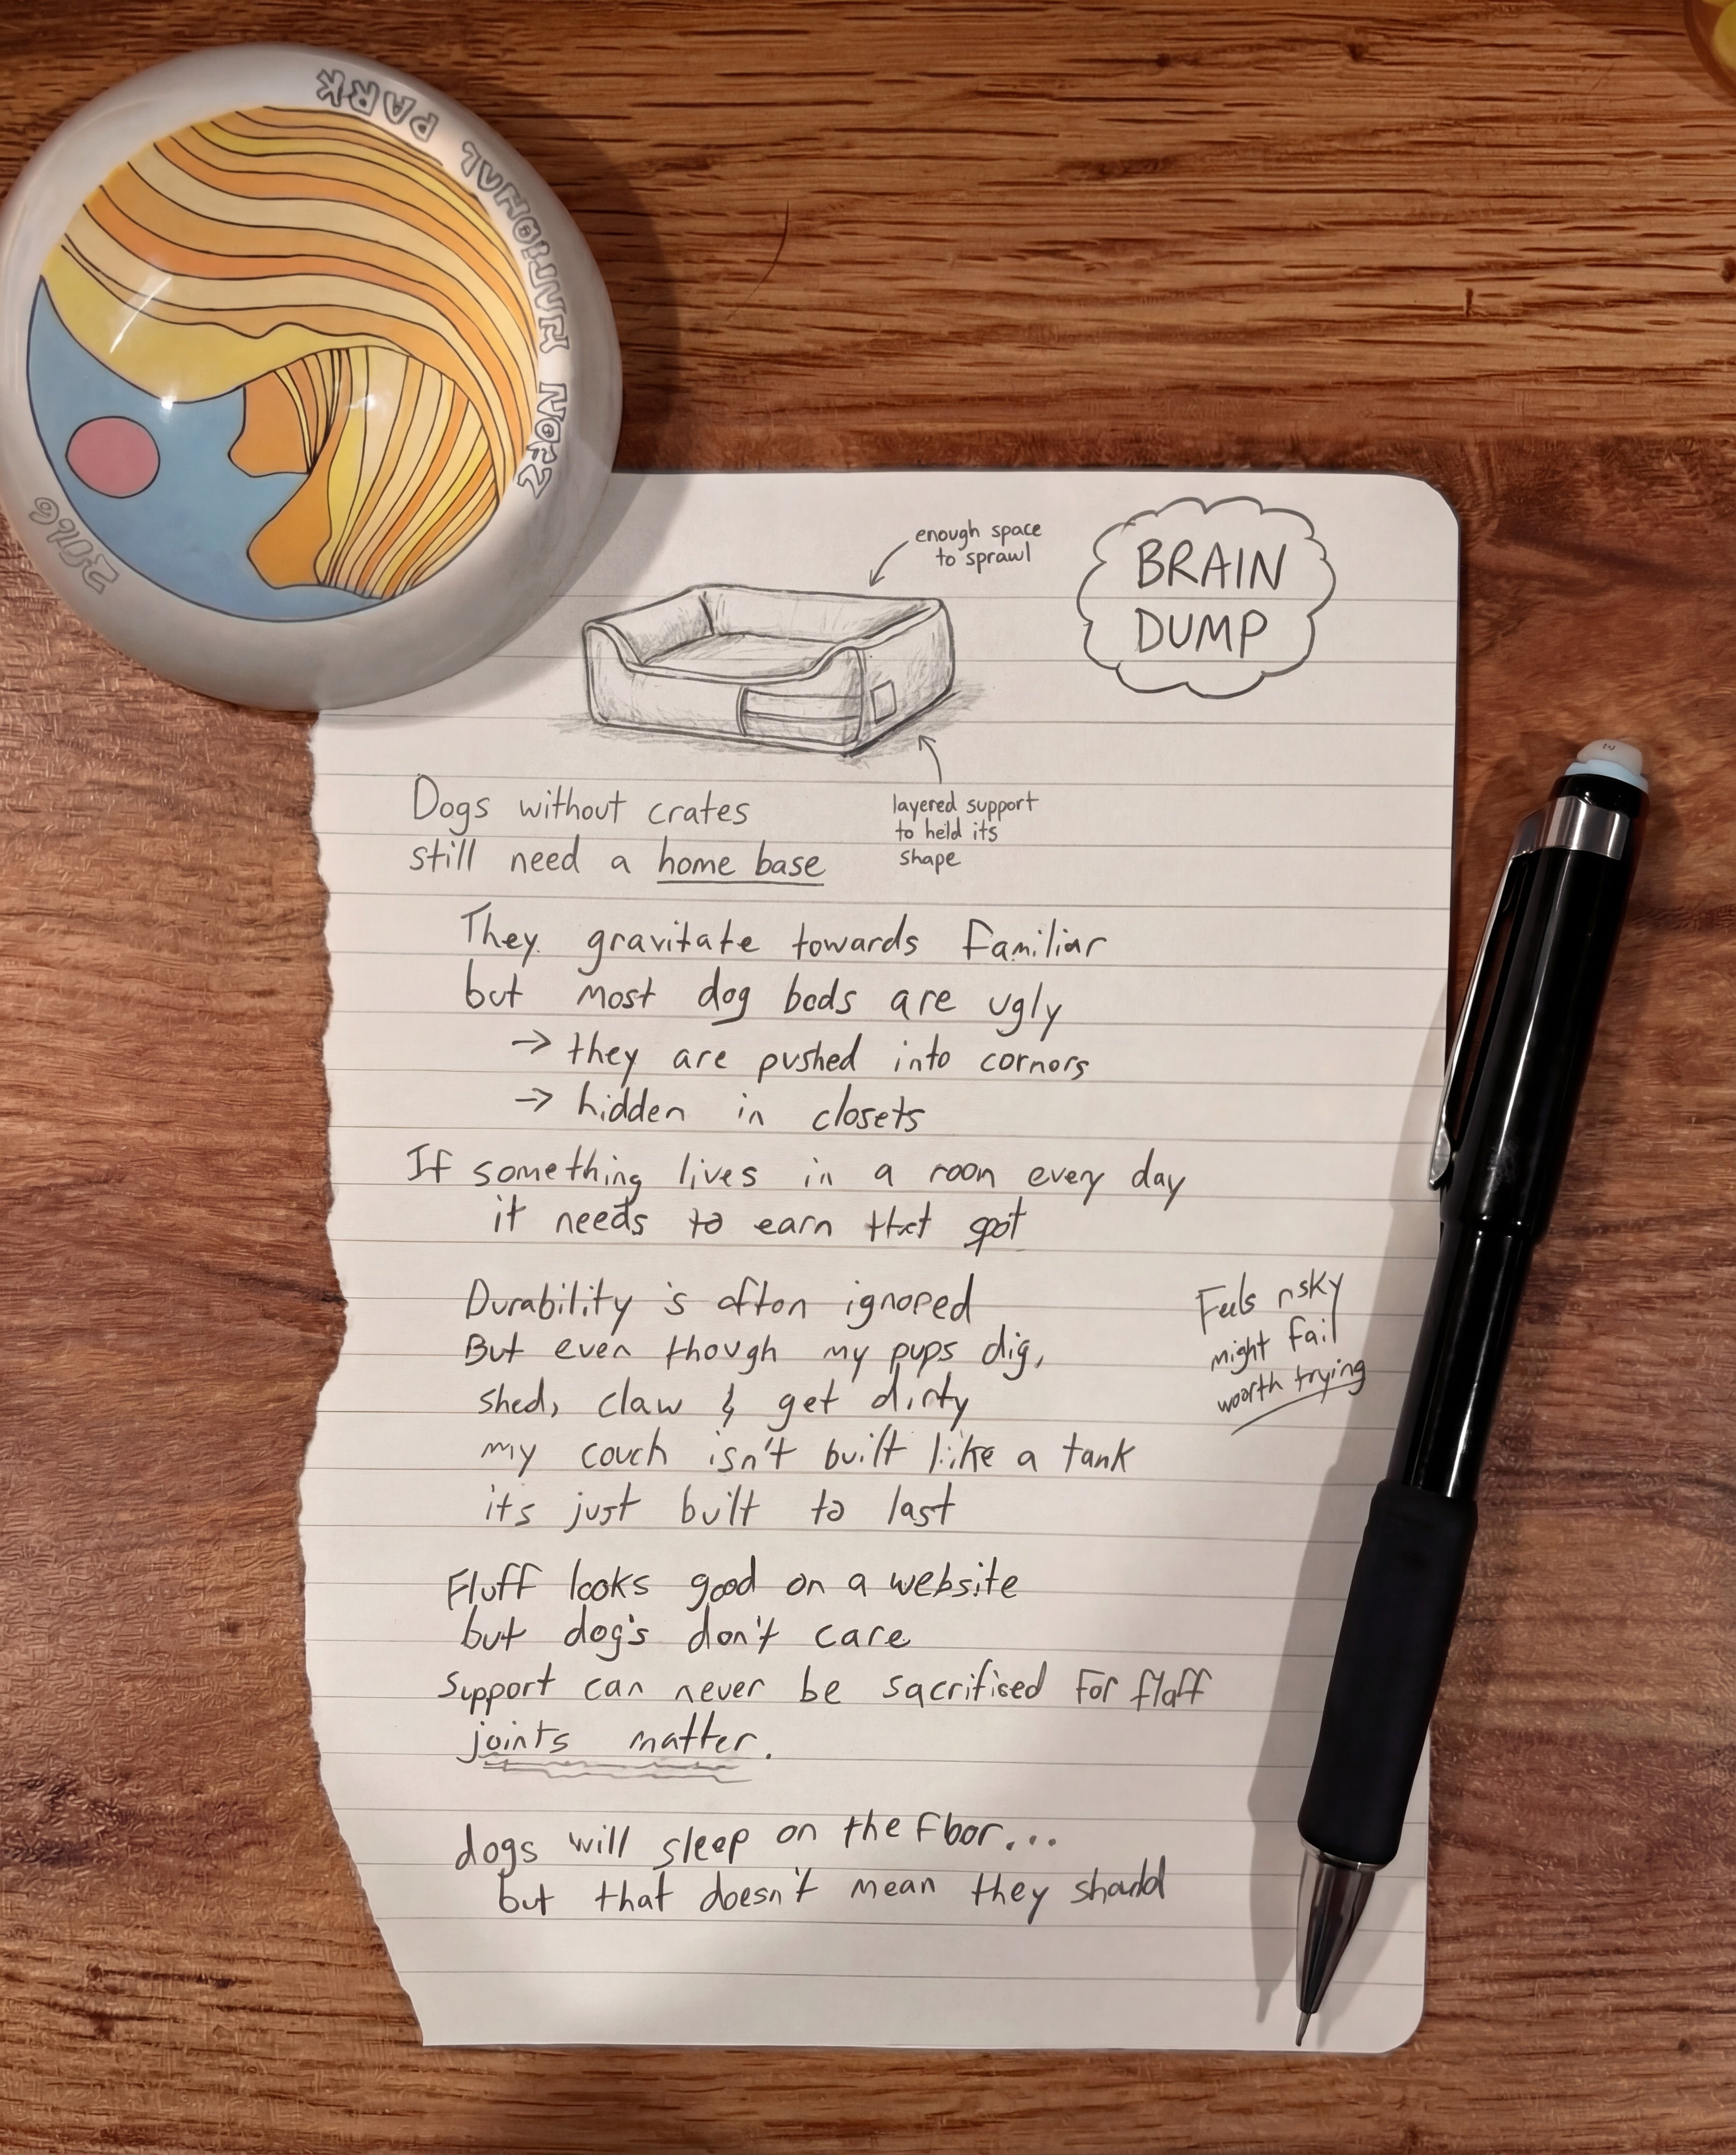 ZION NATIONAL PARK
2016
enough space
to sprawl
BRAIN
DUMP
layered support
to held its
shape
Dogs without crates
still need a home base
They gravitate towards familiar
but most dog beds are ugly
→ they are pushed into corners
→ hidden in closets
If something lives in a room every day
it needs to earn that spot
Durability is often ignored
But even though my pups dig,
shed, claw & get dirty
my couch isn't built like a tank
its just built to last
Feels risky
might fail
worth trying
Fluff looks good on a website
but dog's don't care
support can never be sacrificed for fluff
joints matter.
dogs will sleep on the floor...
but that doesn't mean they should